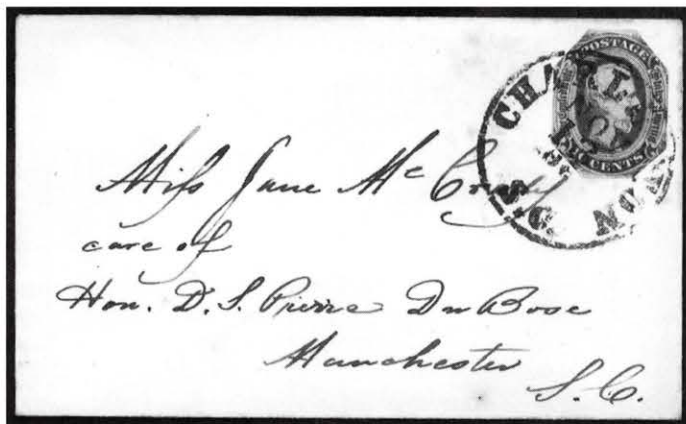 POSTAGE
CENTS
CHARLESTON
S.C.
Miss Jane
care of
Hon. D. S. Pierre DuBose
Manchester
S.C.